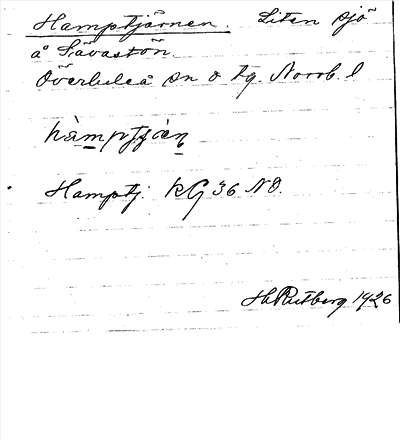 Hamptjärnen. Liten sjö
å Sävastön.
Överluleå sn o tg. Norrb. l
hàmptjà̀n̥
Hamptj. kG 36 NO.
Rutberg 1926